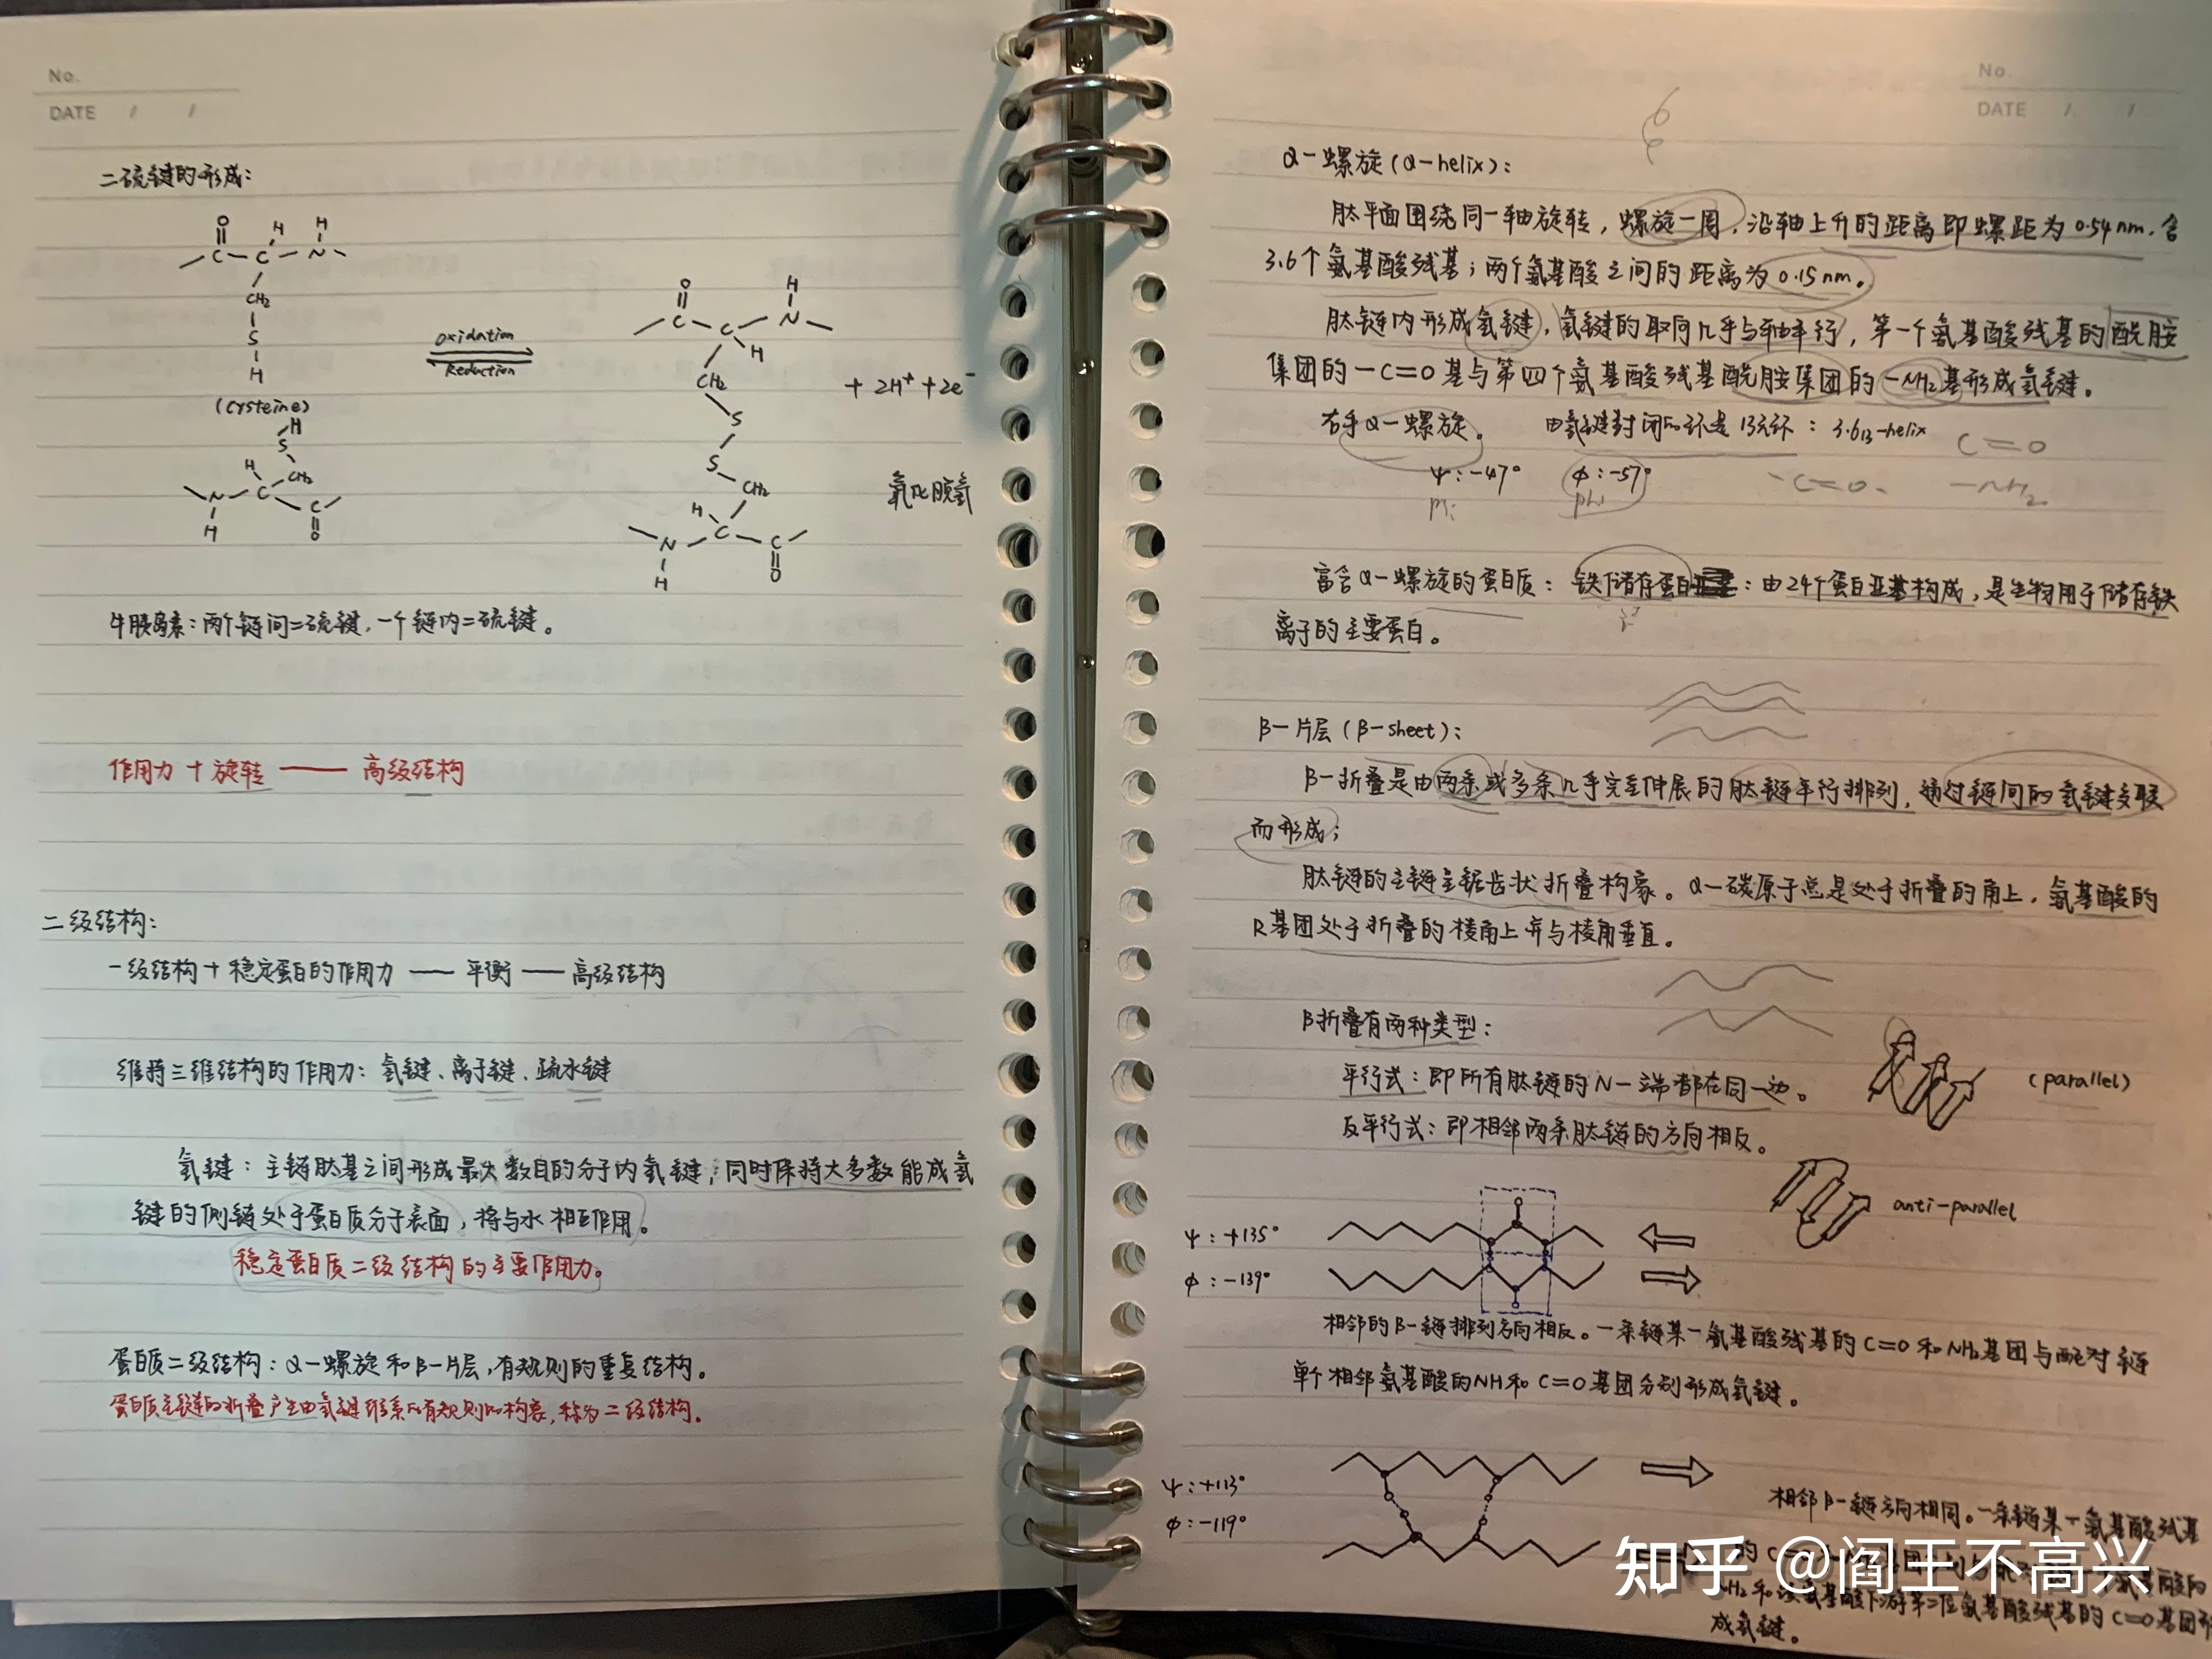 No.
DATE / /
二硫键的形成：
O H H
C — C — N
CH₂
S
H
(cysteine)
H
S
H CH₂
N C C
H O
oxidation
Reduction
O H
C C N
H
CH₂
S
S
CH₂
H
N C C
H O
+ 2H⁺ + 2e⁻
氧化脱氢
牛胰岛素：两个链间二硫键，一个链内二硫键。
作用力 + 旋转 —— 高级结构
二级结构：
一级结构 + 稳定蛋白的作用力 —— 平衡 —— 高级结构
维持三维结构的作用力：氢键、离子键、疏水键
氢键：主链肽基之间形成最大数目的分子内氢键；同时保持大多数能成氢
键的侧链处于蛋白质分子表面，将与水相互作用。
稳定蛋白质二级结构的主要作用力。
蛋白质二级结构：α-螺旋和β-片层，有规则的重复结构。
蛋白质主链的折叠产生由氢键维系的有规则的构象，称为二级结构。
No.
DATE / /
α-螺旋（α-helix）：
肽平面围绕同一轴旋转，螺旋一周，沿轴上升的距离即螺距为0.54nm，含
3.6个氨基酸残基；两个氨基酸之间的距离为0.15nm。
肽链内形成氢键，氢键的取向几乎与轴平行，第一个氨基酸残基的酰胺
集团的-C=O基与第四个氨基酸残基酰胺集团的-NH₂基形成氢键。
右手α-螺旋。 由氢键封闭的环是13元环：3.6₁₃-helix
C=O
ψ：-47° φ：-57° -C=O- -NH₂
psi phi
富含α-螺旋的蛋白质：铁储存蛋白：由24个蛋白亚基构成，是生物用于储存铁
离子的主要蛋白。
β-片层（β-sheet）：
β-折叠是由两条或多条几乎完全伸展的肽链平行排列，通过链间的氢键交联
而形成；
肽链的主链呈锯齿状折叠构象。α-碳原子总是处于折叠的角上，氨基酸的
R基团处于折叠的棱角上并与棱角垂直。
β折叠有两种类型：
平行式：即所有肽链的N-端都在同一边。 (parallel)
反平行式：即相邻两条肽链的方向相反。
anti-parallel
ψ：+135°
φ：-139°
相邻的β-链排列方向相反。一条链某一氨基酸残基的C=O和NH₂基团与配对链
单个相邻氨基酸的NH和C=O基团分别形成氢键。
ψ：+113°
φ：-119°
相邻β-链方向相同。一条链某一氨基酸残基
的C
NH₂和该氨基酸下游第二位氨基酸残基的C=O基团形
成氢键。
知乎 @阎王不高兴